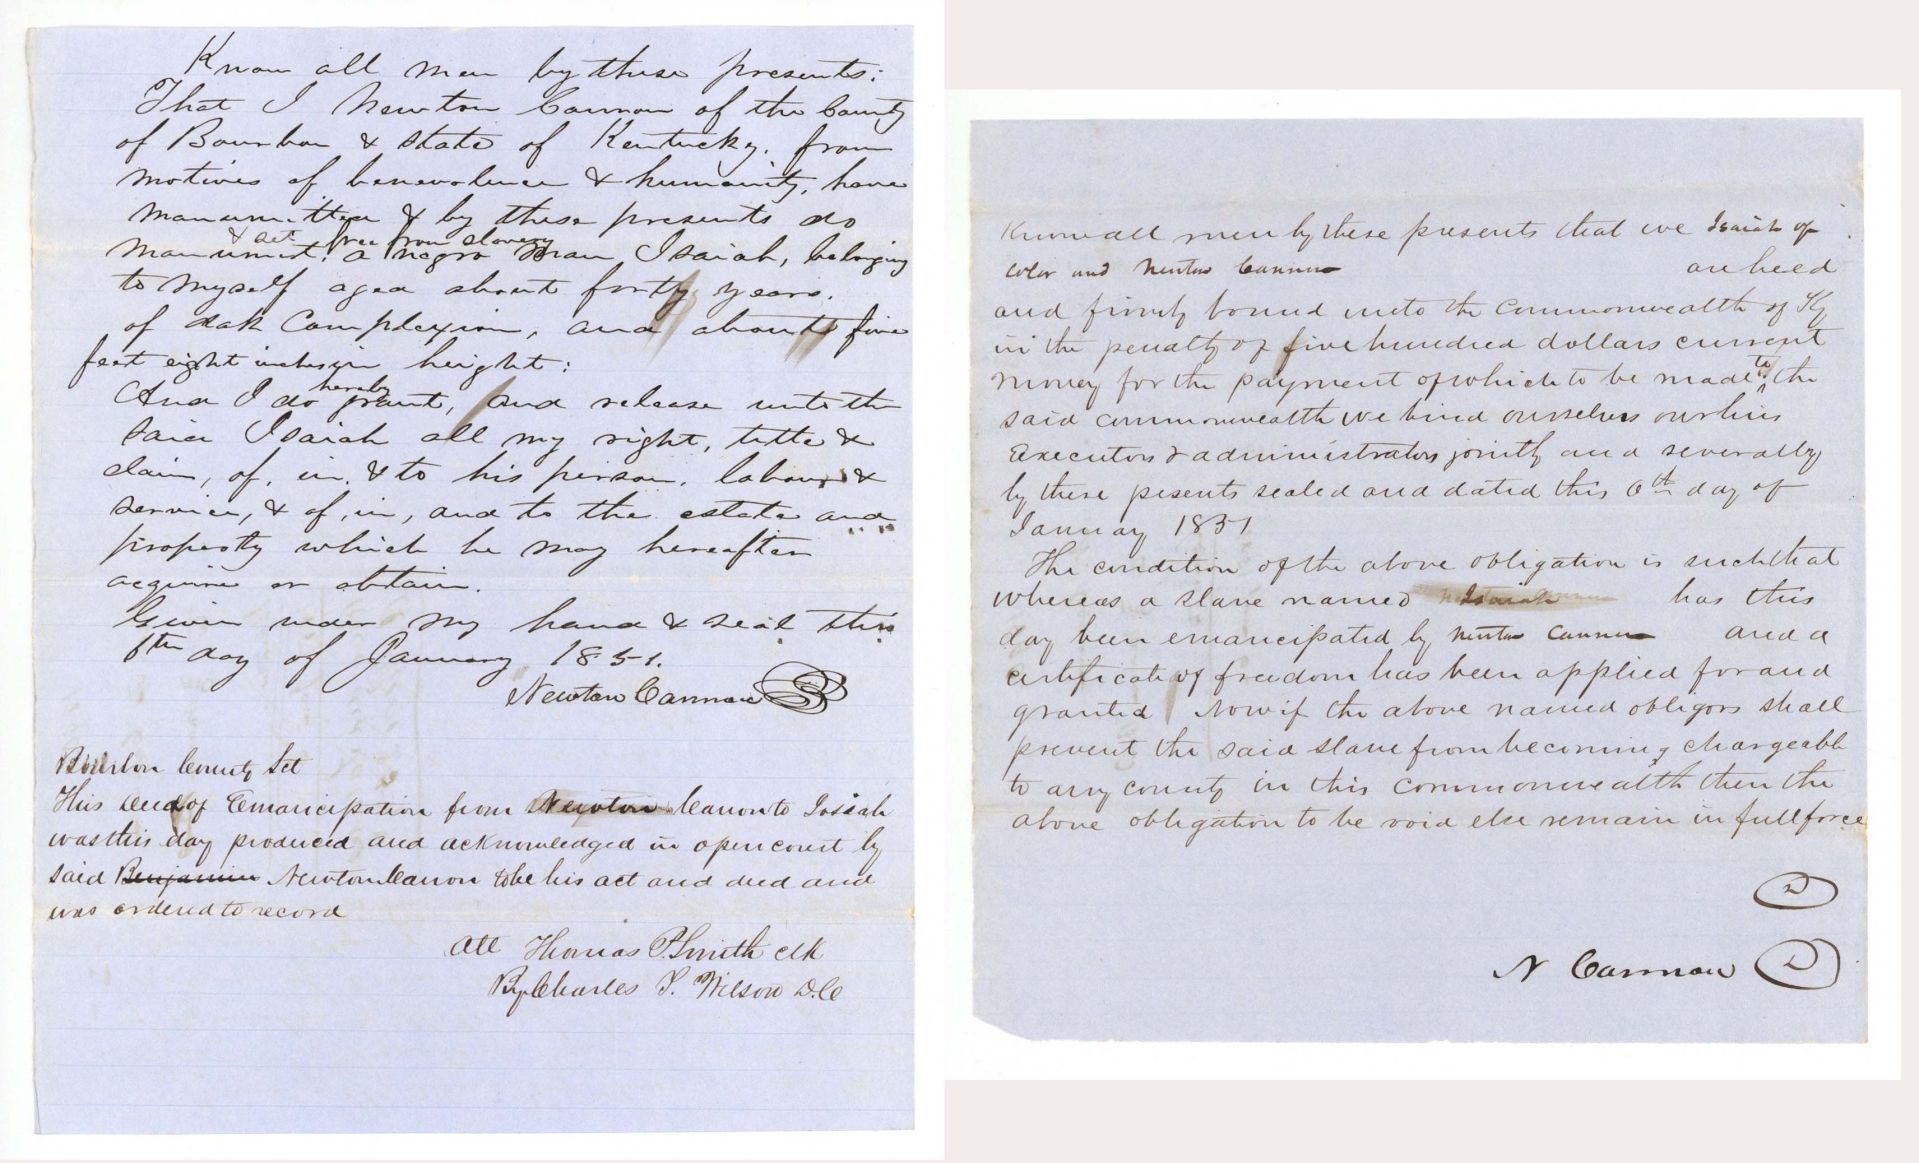 Know all men by these presents:
That I Newton Cannon of the County
of Bourbon & state of Kentucky, from
motives of benevolence & humanity, have
manumitted & by these presents do
& set free from slavery
manumit, a negro man Isaiah, belonging
to myself aged about forty years,
of dak Complexion, and about five
feet eight inches in height:
hereby
And I do grant, and release unto the
said Isaiah all my right, title &
claim, of, in, & to his person, labour &
service, & of, in, and to the estate and
property which he may hereafter
acquire or obtain.
Given under my hand & seal this
6th day of January 1851.
Newton Cannon
Bourbon County Sct
This deed of Emancipation from Newton Canon to Isaiah
was this day produced and acknowledged in open court by
said Benjamin Newton Canon to be his act and deed and
was ordered to record
Att Thomas P. Smith clk
By Charles T. Wilson D.C
Know all men by these presents that we Isaiah of
color and Newton Cannon are held
and firmly bound unto the commonwealth of Ky
in the penalty of five hundred dollars current
money for the payment of which to be made to the
said commonwealth we bind ourselves our heirs
Executors & administrators jointly and severally
by these pesents sealed and dated this 6th day of
January 1851
The condition of the above obligation is such that
whereas a slave named Isaiah has this
day been emancipated by Newton Cannon and a
certificate of freedom has been applied for and
granted Now if the above named obligors shall
prevent the said slave from becoming chargeable
to any county in this commonwealth then the
above obligation to be void else remain in full force
N Cannon